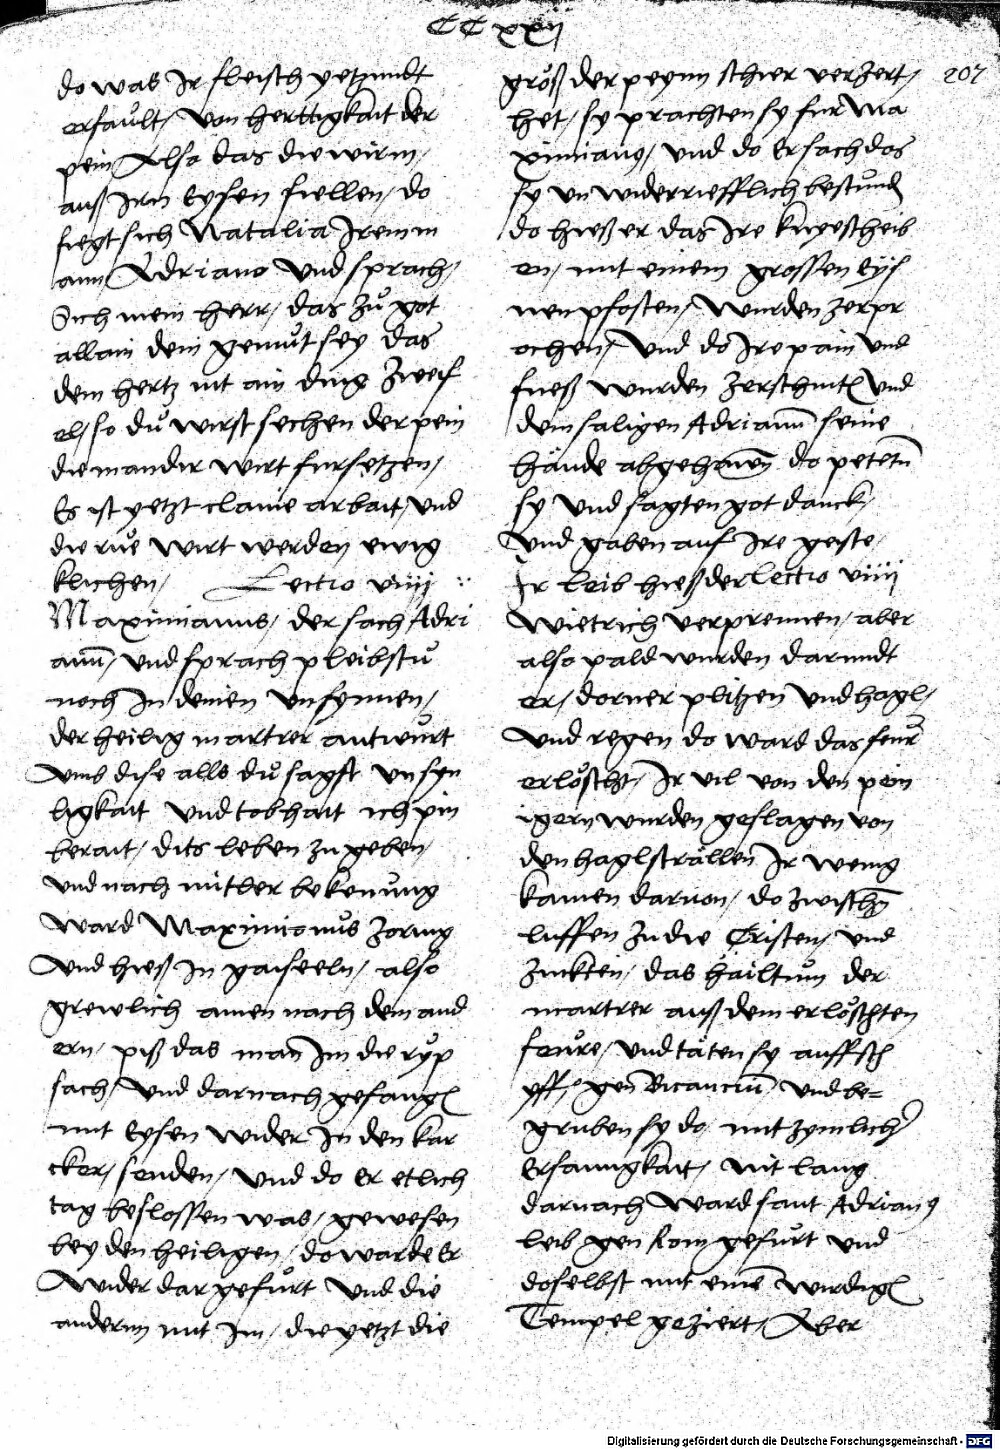 CCxxij
207
do was Ir fleisch yetzundt
erfault / von herttigkait der
pein / Also das die wirm /
auß Irn Eysen fiellen / do
fiegt sich Natalia Irem m
ann / Adriano Vnd sprach /
Sich mein herr / das zů got
allain dein gemůt sey das
dem hertz nit ain ding zweif
el / so dů wirst sechen der pein
die mandir wirt fursetzen /
Es ist yetzt claine arbait / vnd
die růe wirt werden ewig
klichen / Lectio viiij
Maximianus / der sach Adri
anū / vnd sprach pleibstů
noch In deinen vnsynnen /
der heilig martrer antwůrt
vmb dise alls dů sagst vnsyn
ligkait vnd tobhait ich pin
berait / dits leben zu geben /
vnd nach mitler bekenůng
ward Maximianůs zornig
vnd hieß In gaiseeln / also
grewlich ainen nach dem and
ern / piß das man Im die ryp
sach / vnd darnach gefangē
mit Eysen wider In den kar
cker / senden / vnd do Er etlich
tag beslossen was / gewesen
bey den heiligen / do warde Er
wider dar gefůrt vnd die
andernn mit Im / die yetzt die
größ der peynn schier verzert /
het / sy prachten sy fur Ma
ximiang / vnd do Er sach das
sy vnwiderriefflich bestund
do hieß er das Ire knyescheib
en / mit einem grossen Eyß
nen pfosten / wurden zerpr
ochen / vnd do Ire pain vnd
fueß wurden zerschnitē vnd
dem saligen Adrianū seine
hände abgehawē do petetn
sy vnd sagten got danck /
vnd gaben auf Ire geiste /
Ir leib hieß der Lectio viiij
Wietrich verprennen / aber
also pald wurden darundt
er / dorner plitzen vnd hagl /
vnd regen do ward das feur
erlöscht / Ir vil von den pein
igern wurden geslagen von
den haglsträllen Ir wenig
kamen daruon / do zwischē
luffen zu die Cristen / vnd
zuckten / das häiltum der
martrer auß dem erlöschten
feure / vnd täten sy auff sch
yff / gen Bicanciū vnd be=
gruben sy do mit zymlicher
Ersamigkait / nit lang
darnach ward sant Adriang
leib gen Rom gefůrt vnd
doselbst mit einē wirdigē
Tempel geziert / Aber
Digitalisierung gefördert durch die Deutsche Forschungsgemeinschaft - DFG